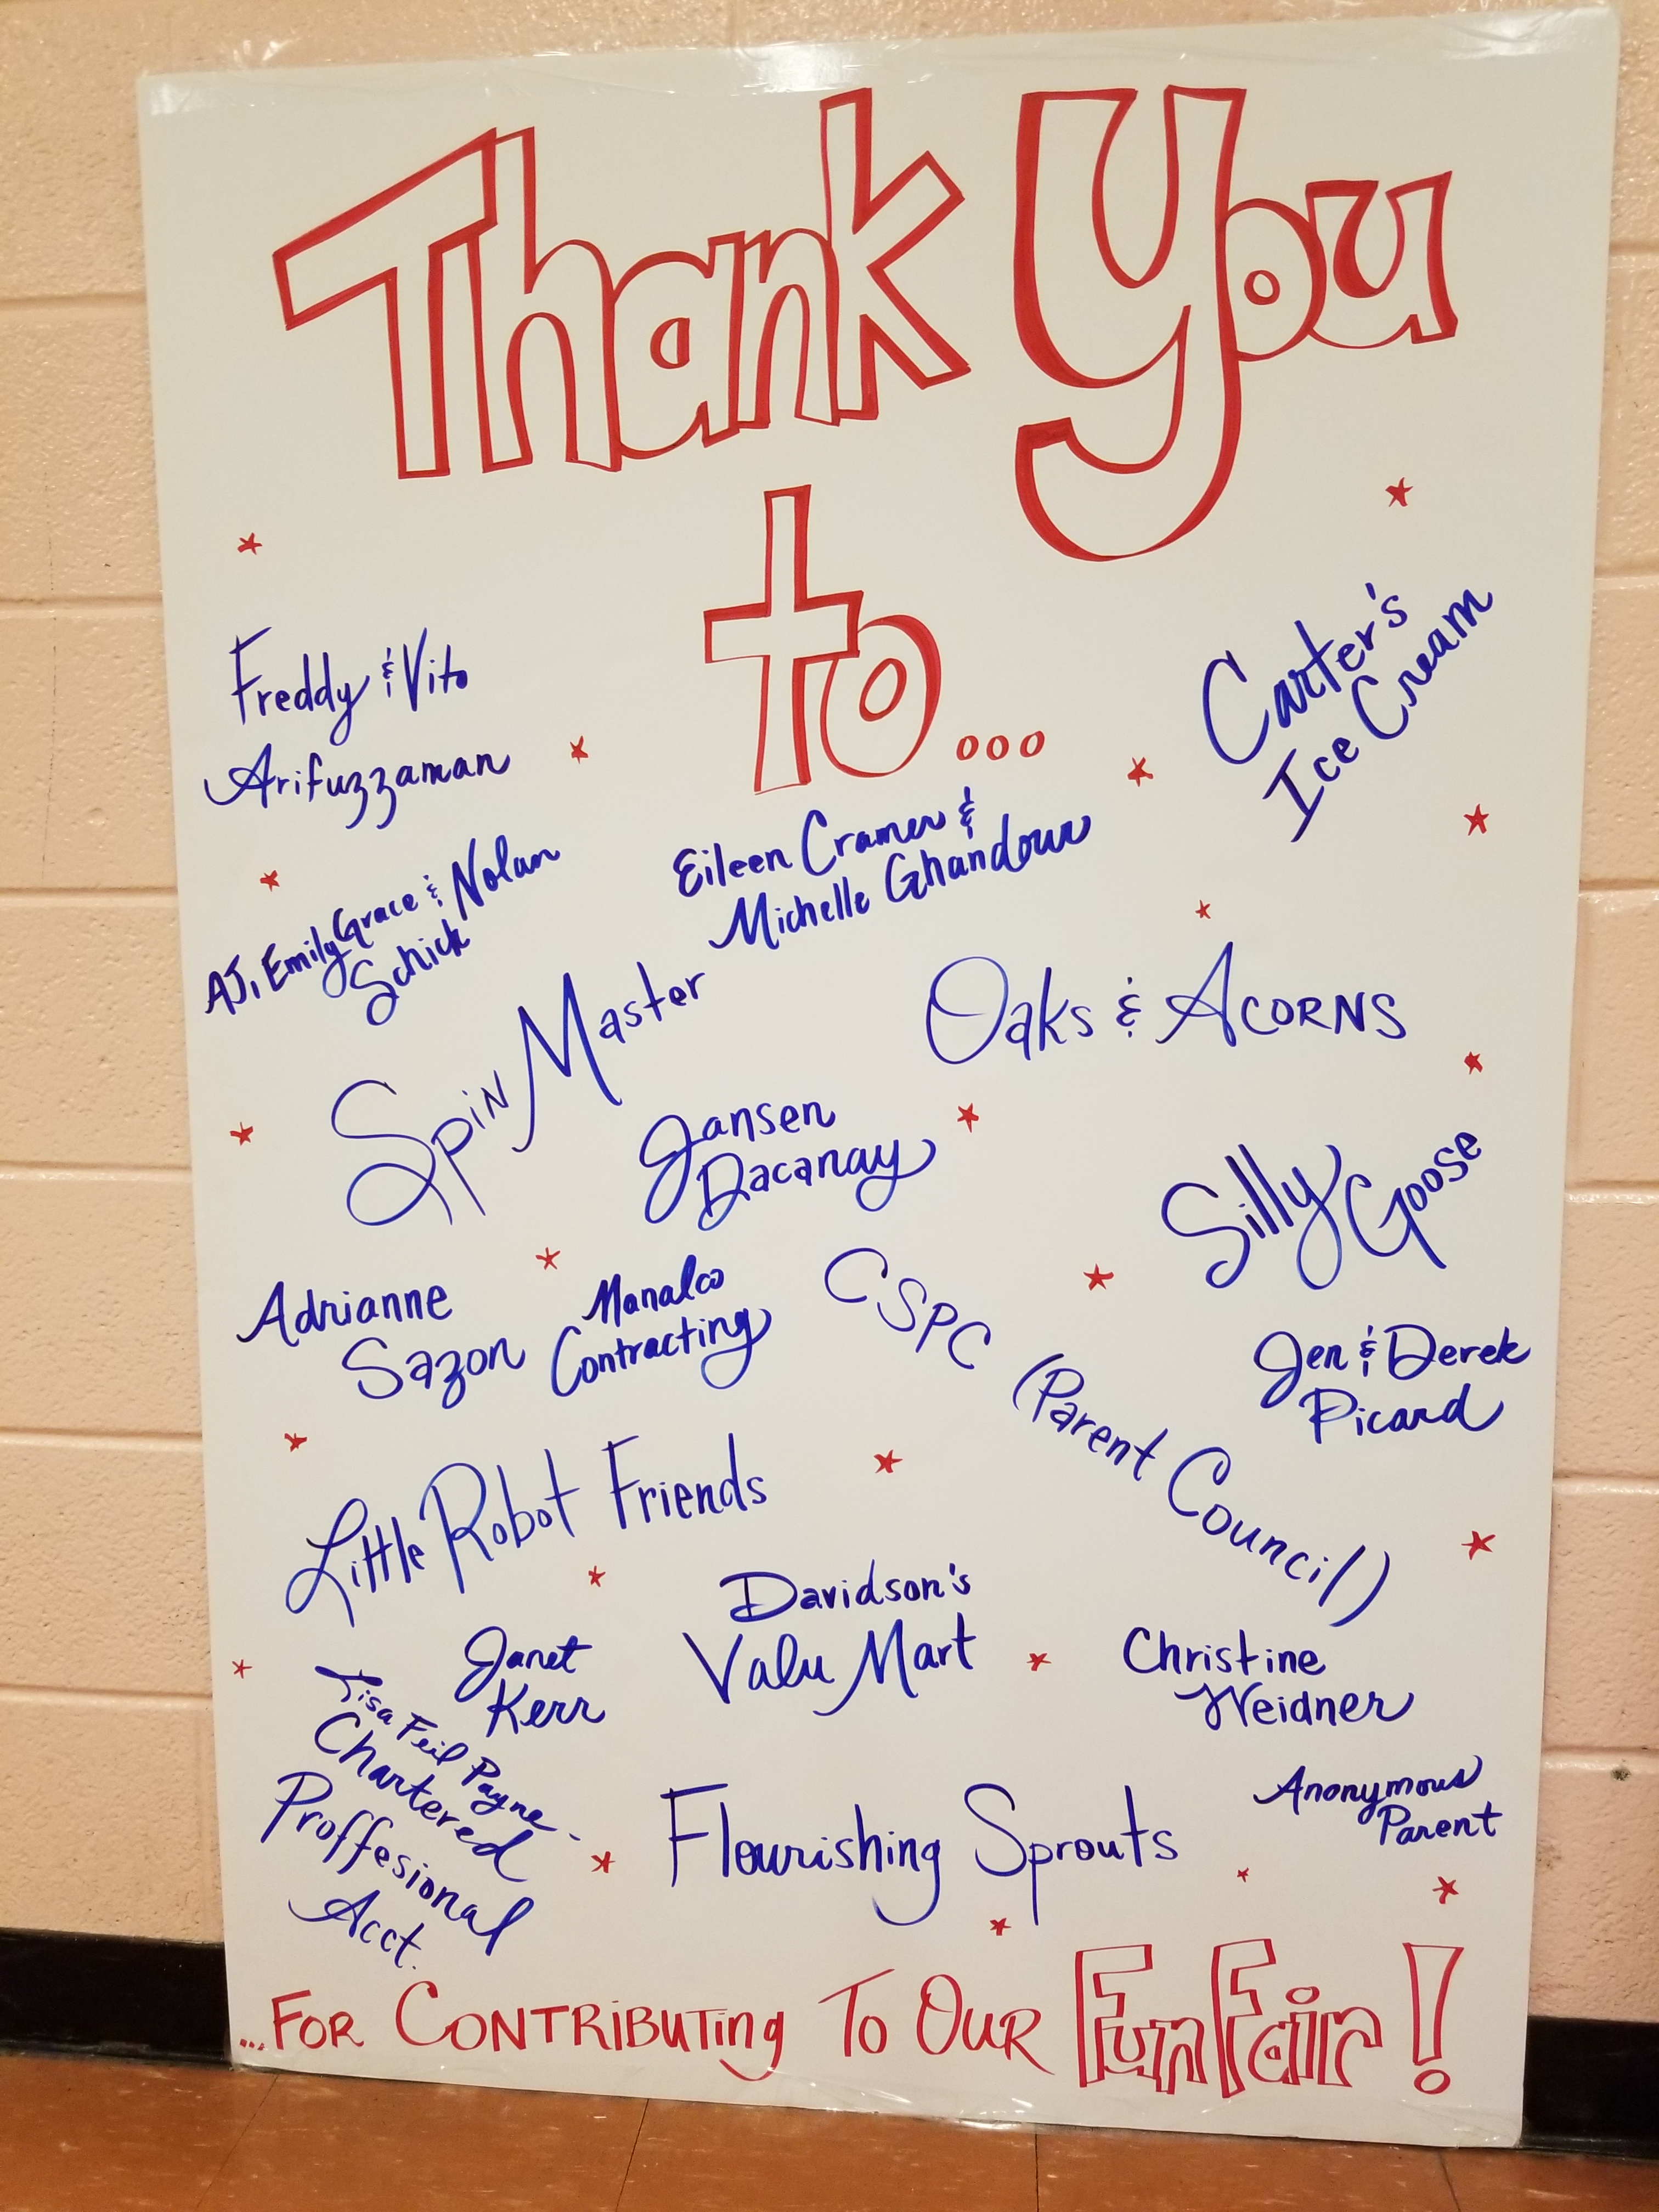 Thank You
to...
Freddy & Vito
Arifuzzaman
Carter's
Ice Cream
AJ, Emily Grace & Nolan
Schick
Eileen Cramer &
Michelle Ghandour
Spin Master
Oaks & ACORNS
Jansen
Dacanay
Silly Goose
Adrianne
Sazon
Manalco
Contracting
CSPC (Parent Council)
Jen & Derek
Picard
Little Robot Friends
Davidson's
Valu Mart
Janet
Kerr
Christine
Weidner
Lisa Feil Payne -
Chartered
Proffesional
Acct.
Flourishing Sprouts
Anonymous
Parent
...FOR CONTRIBUTing To OUR FunFair!